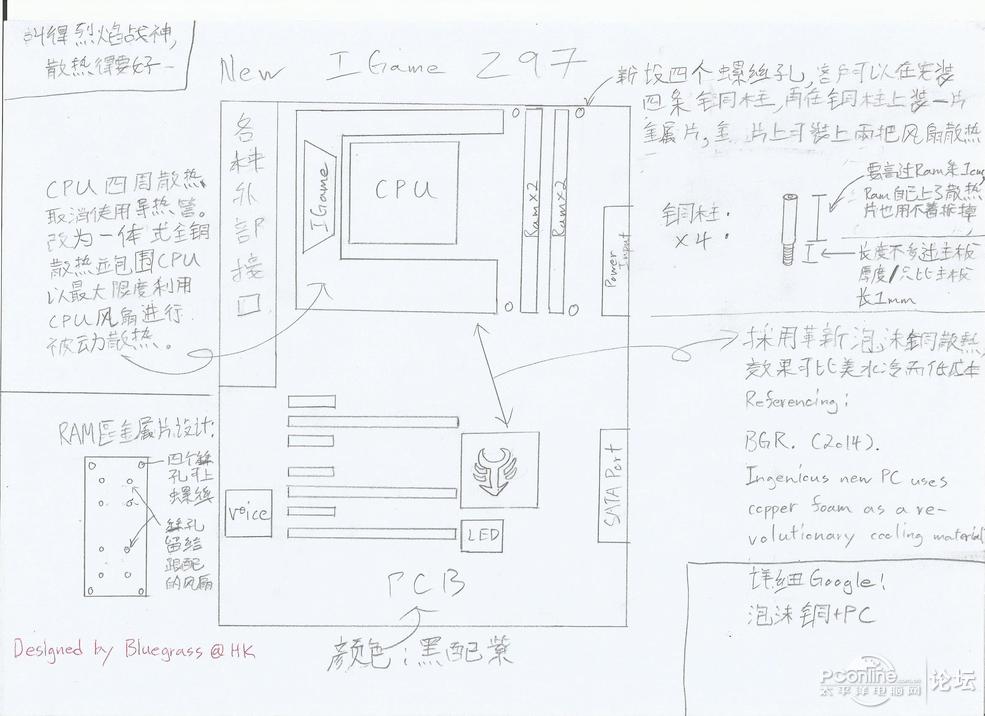 叫得烈焰战神,
散热得要好—
New IGame Z97
新设四个螺丝孔,客户可以在安装
四条铜柱,再在铜柱上装一片
金属片,金 片上可装上两把风扇散热
各种外部接口
CPU四周散热,
取消使用导热管。
改为一体式全铜
散热並包围CPU
以最大限度利用
CPU风扇进行
被动散热。
IGame
CPU
Ram×2
Ram×2
Power
Input
铜柱:
×4:
要高过Ram条1cm,
Ram自己上了散热
片也用不着拆掉
长度不多过主板
厚度/只比主板
长1mm
採用革新泡沫铜散热,
效果可比美水冷而低成本
Referencing:
BGR. (2014).
Ingenious new PC uses
copper foam as a re-
volutionary cooling material
详细Google!
泡沫铜+PC
RAM區金属片设计:
四个絲
孔可上
螺丝
絲孔
留给
跟配
的风扇
voice
LED
SATA Port
PCB
颜色:黑配紫
Designed by Bluegrass@HK
PConline.com.cn
太平洋电脑网
论坛